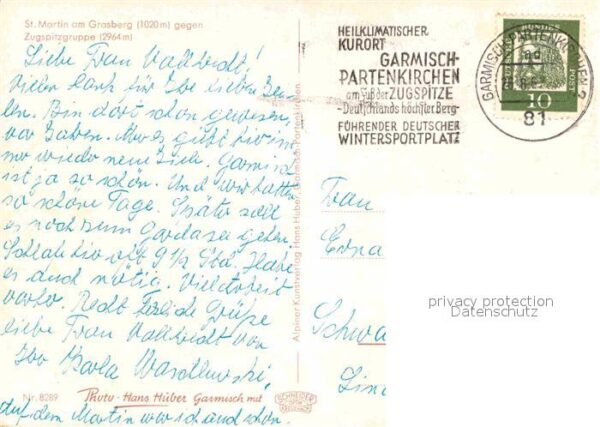 St. Martin am Grasberg (1020 m) gegen
Zugspitzgruppe (2964 m)
Liebe Frau Vallbidt!
Vielen Dank für Ihre lieben Zei-
len. Bin dort schon gewesen,
vor Jahren. Aber es gibt hier im-
mer wieder neue Ziele. Garmisch
ist ja so schön. Und wir hatten
so schöne Tage. Später soll
es noch zum Gardasee gehen.
Schlafe hier oft 9 1/2 Std. Habe
es auch nötig. Viel Arbeit
vorher. Recht herzliche Grüße
liebe Frau Vallbidt von
Ihrer
auf dem Martin war ich auch schon.
Nr. 8289
Photo - Hans Huber Garmisch mit
Alpiner Kunstverlag Hans Huber, Garmisch-Partenkirchen
HEILKLIMATISCHER
KURORT
GARMISCH-
PARTENKIRCHEN
am Fuß der ZUGSPITZE
- Deutschlands höchster Berg -
FÜHRENDER DEUTSCHER
WINTERSPORTPLATZ
GARMISCH-PARTENKIRCHEN 2
81
10
Frau
Erna
Schwa
Lin
privacy protection
Datenschutz